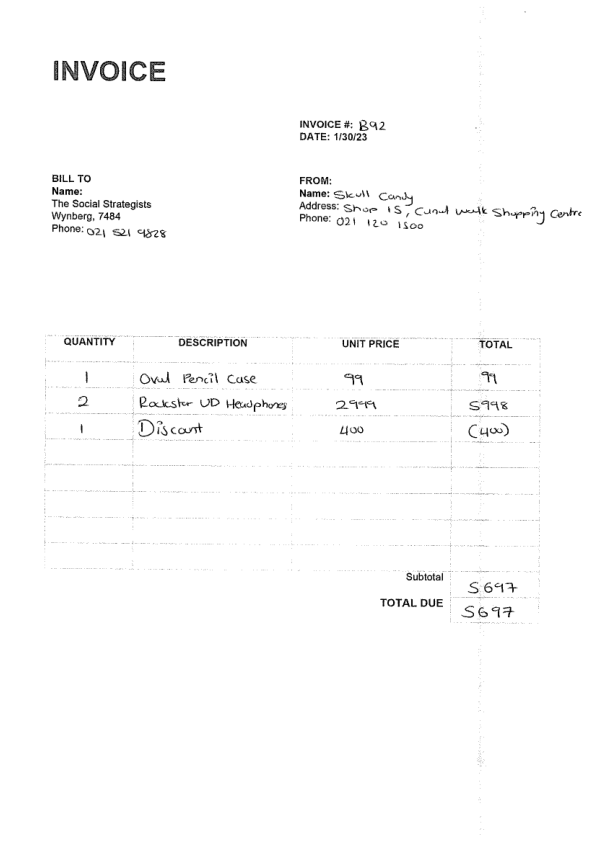 INVOICE
INVOICE #: B92
DATE: 1/30/23
BILL TO
Name:
The Social Strategists
Wynberg, 7484
Phone: 021 521 9828
FROM:
Name: Skull Candy
Address: Shop 15, Canal Walk Shopping Centre
Phone: 021 120 1500
QUANTITY DESCRIPTION UNIT PRICE TOTAL
1 Oval Pencil Case 99 99
2 Rockstar UD Headphones 2999 5998
1 Discount 400 (400)
Subtotal 5697
TOTAL DUE 5697